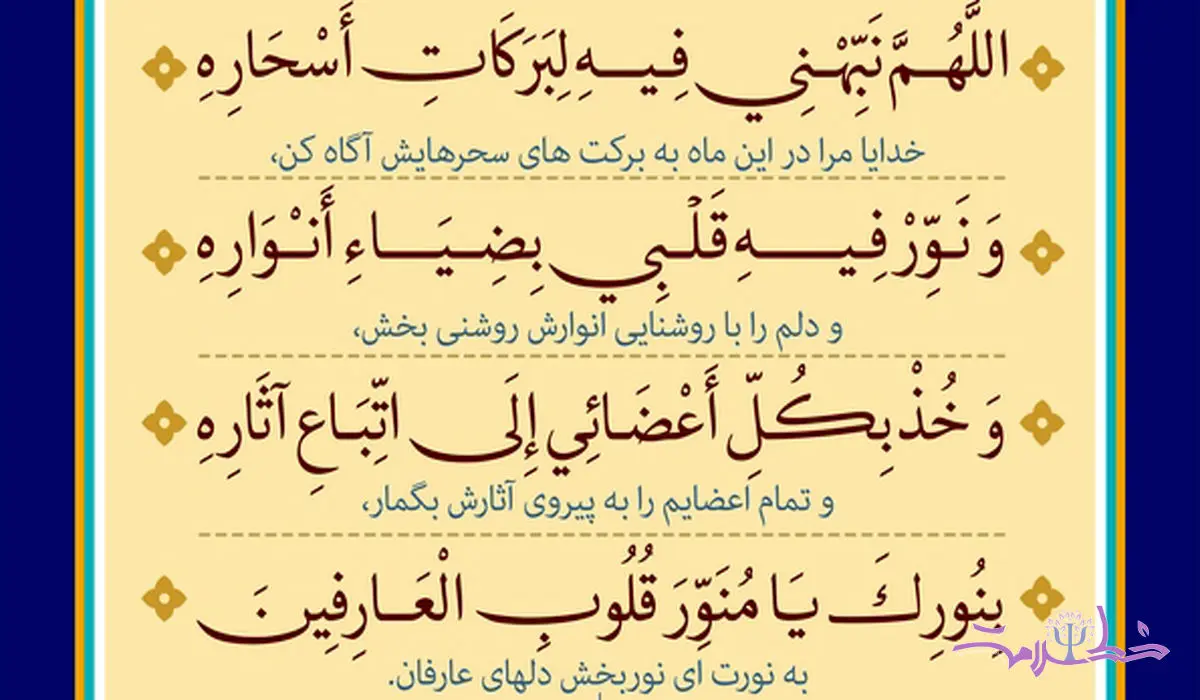 اللَّهُمَّ نَبِّهْنِي فِيهِ لِبَرَكَاتِ أَسْحَارِهِ
خدایا مرا در این ماه به برکت های سحرهایش آگاه کن،
وَ نَوِّرْ فِيهِ قَلْبِي بِضِيَاءِ أَنْوَارِهِ
و دلم را با روشنایی انوارش روشنی بخش،
وَ خُذْ بِكُلِّ أَعْضَائِي إِلَى اتِّبَاعِ آثَارِهِ
و تمام اعضایم را به پیروی آثارش بگمار،
بِنُورِكَ يَا مُنَوِّرَ قُلُوبِ الْعَارِفِينَ
به نورت ای نوربخش دلهای عارفان.
خط سلامت